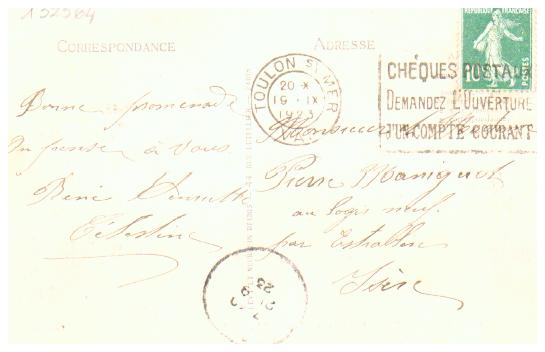 152564
CORRESPONDANCE
ADRESSE
REPUBLIQUE FRANÇAISE
10
POSTES
TOULON S MER
20 - X
19 - IX
1923
VAR
CHÉQUES POSTAUX
DEMANDEZ L'OUVERTURE
D'UN COMPTE COURANT
Bonne promenade
on pense à vous
René
Célestine
Monsieur
Pierre Maniquet
au logis neuf
par Estrablin
Isère
23